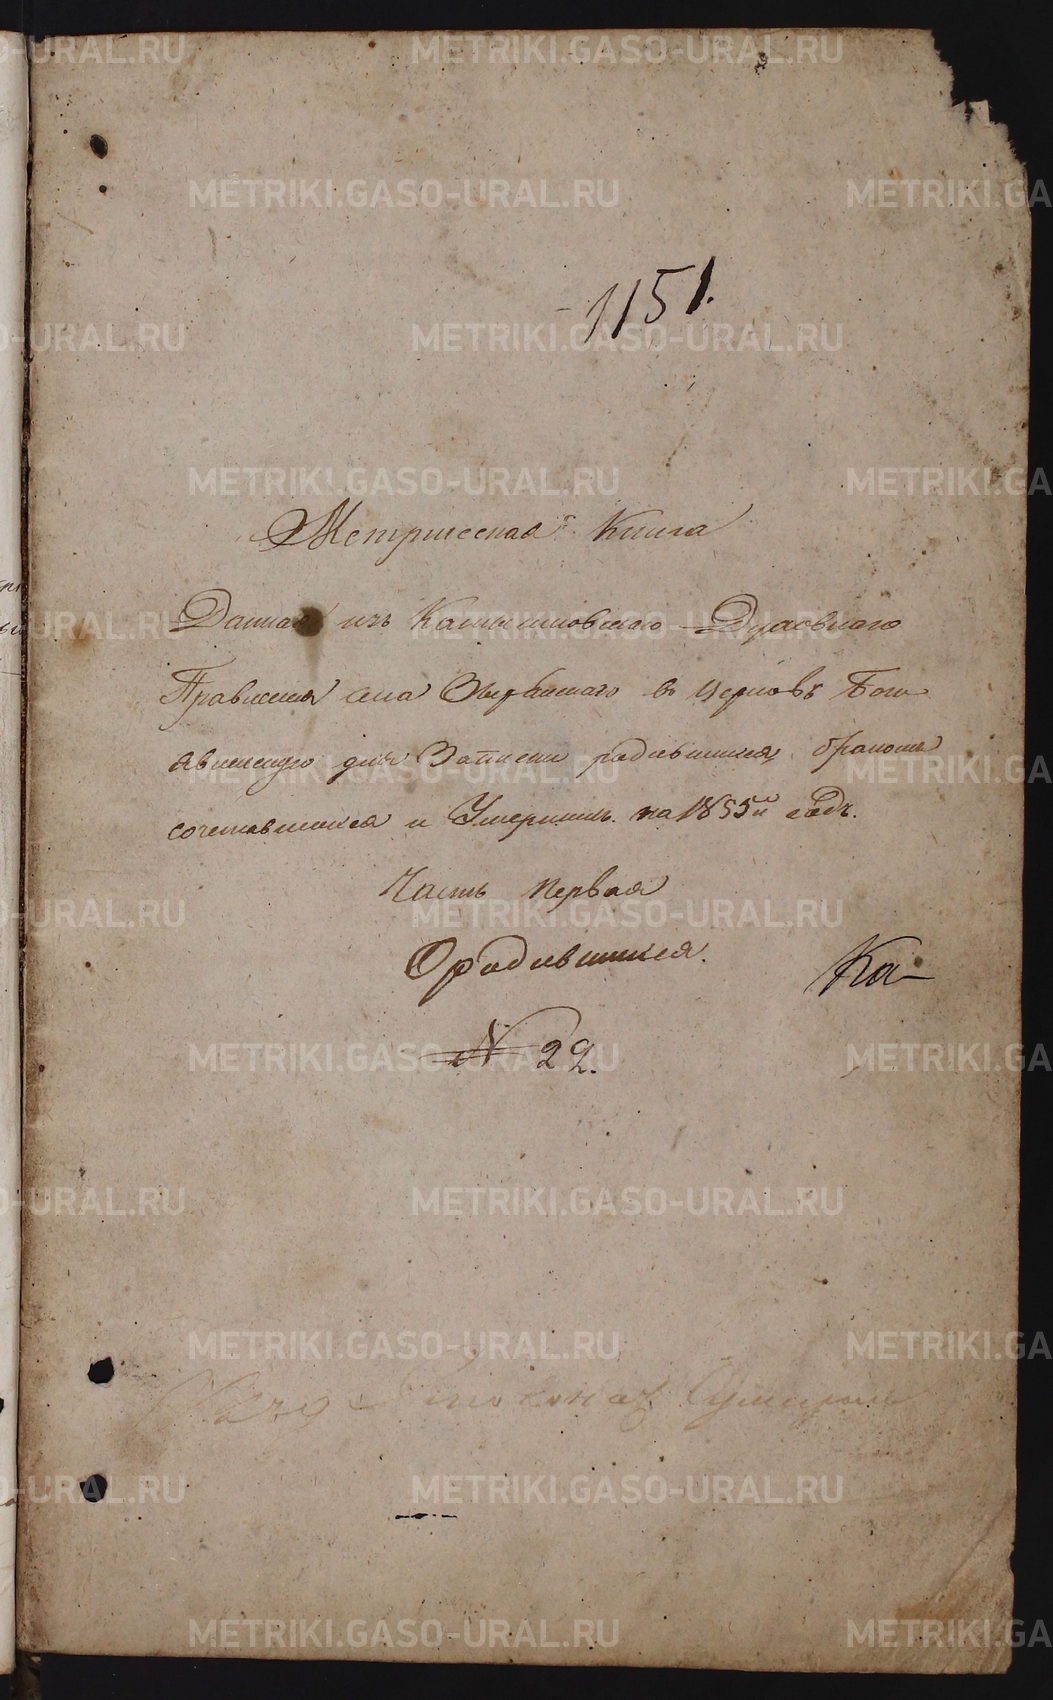 1151.
Метрическая Книга
Данная изъ Камышловскаго Духовнаго
Правленія села Зырянскаго въ церковь Бого
явленскую для Записки родившихся, бракомъ
сочетавшихся и Умершихъ на 1855й годъ.
Часть первая
О родившихся.
Ка-
N 22.
METRIKI.GASO-URAL.RU